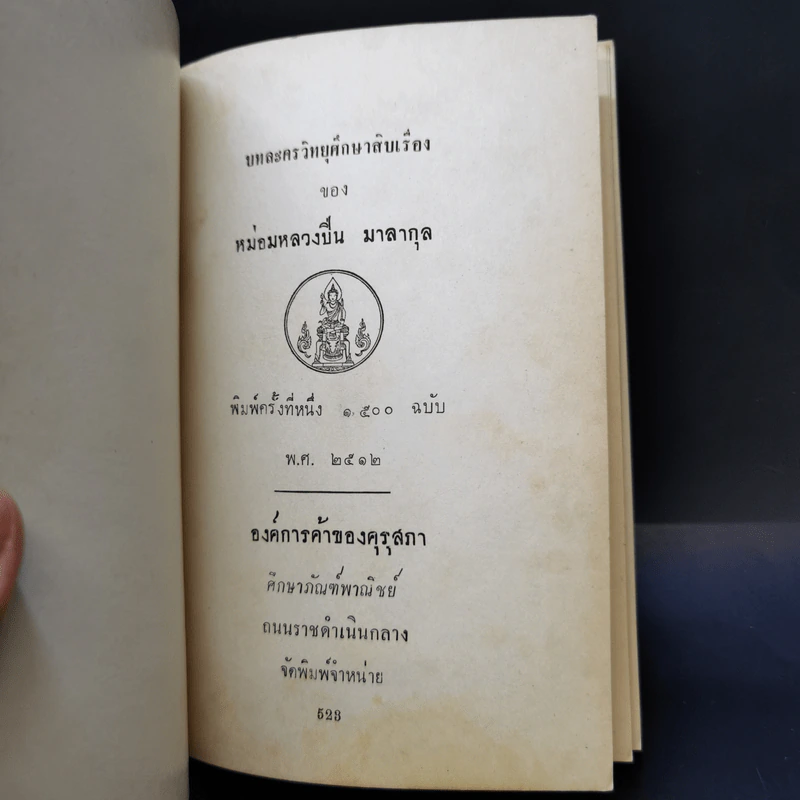 บทละครวิทยุศึกษาสิบเรื่อง
ของ
หม่อมหลวงปิ่น มาลากุล
พิมพ์ครั้งที่หนึ่ง ๑,๕๐๐ ฉบับ
พ.ศ. ๒๕๑๒
องค์การค้าของคุรุสภา
ศึกษาภัณฑ์พาณิชย์
ถนนราชดำเนินกลาง
จัดพิมพ์จำหน่าย
523